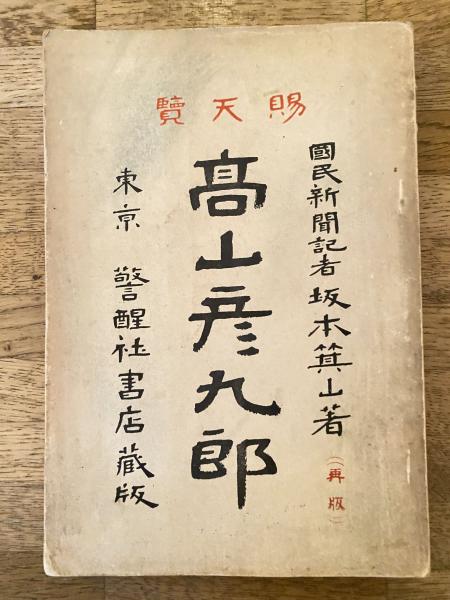 賜天覽
國民新聞記者坂本箕山著
(再版)
高山彦九郎
東京 警醒社書店蔵版